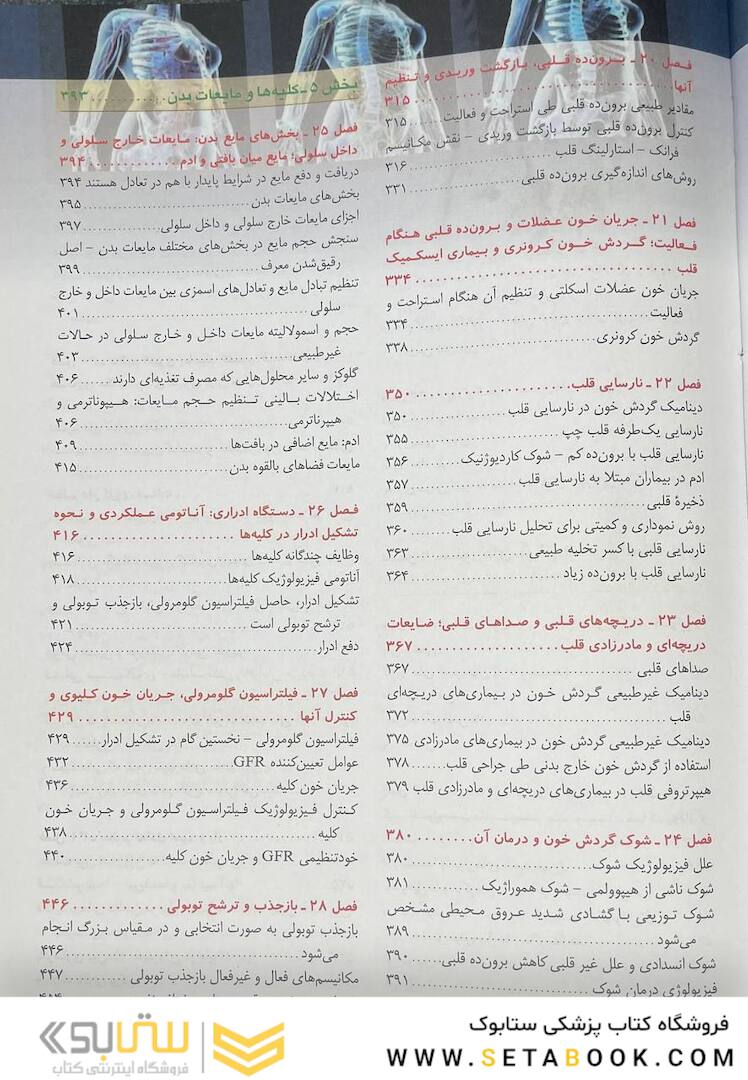 فصل ۲۰ ـ برون‌ده قلبی، بازگشت وریدی و تنظیم
آنها ........ ۳۱۵
مقادیر طبیعی برون‌ده قلبی طی استراحت و فعالیت........ ۳۱۵
کنترل برون‌ده قلبی توسط بازگشت وریدی – نقش مکانیسم
فرانک – استارلینگ قلب ........ ۳۱۶
روش‌های اندازه‌گیری برون‌ده قلبی........ ۳۳۱
فصل ۲۱ ـ جریان خون عضلات و برون‌ده قلبی هنگام
فعالیت؛ گردش خون کرونری و بیماری ایسکمیک
قلب ........ ۳۳۴
جریان خون عضلات اسکلتی و تنظیم آن هنگام استراحت و
فعالیت........ ۳۳۴
گردش خون کرونری........ ۳۳۸
فصل ۲۲ ـ نارسایی قلب........ ۳۵۰
دینامیک گردش خون در نارسایی قلب ........ ۳۵۰
نارسایی یک‌طرفه قلب چپ ........ ۳۵۵
نارسایی قلب با برون‌ده کم – شوک کاردیوژنیک........ ۳۵۶
ادم در بیماران مبتلا به نارسایی قلب ........ ۳۵۷
ذخیرهٔ قلبی........ ۳۵۹
روش نموداری و کمیتی برای تحلیل نارسایی قلب........ ۳۶۰
نارسایی قلبی با کسر تخلیه طبیعی........ ۳۶۳
نارسایی قلب با برون‌ده زیاد ........ ۳۶۴
فصل ۲۳ ـ دریچه‌های قلبی و صداهای قلبی؛ ضایعات
دریچه‌ای و مادرزادی قلب........ ۳۶۷
صداهای قلبی ........ ۳۶۷
دینامیک غیرطبیعی گردش خون در بیماری‌های دریچه‌ای
قلب ........ ۳۷۲
دینامیک غیرطبیعی گردش خون در بیماری‌های مادرزادی ۳۷۵
استفاده از گردش خون خارج بدنی طی جراحی قلب........ ۳۷۸
هیپرتروفی قلب در بیماری‌های دریچه‌ای و مادرزادی قلب ۳۷۹
فصل ۲۴ ـ شوک گردش خون و درمان آن........ ۳۸۰
علل فیزیولوژیک شوک........ ۳۸۰
شوک ناشی از هیپوولمی – شوک هموراژیک........ ۳۸۱
شوک توزیعی با گشادی شدید عروق محیطی مشخص
می‌شود ........ ۳۸۹
شوک انسدادی و علل غیر قلبی کاهش برون‌ده قلبی...... ۳۹۰
فیزیولوژی درمان شوک ........ ۳۹۱
بخش ۵ ـ کلیه‌ها و مایعات بدن........ ۳۹۳
فصل ۲۵ ـ بخش‌های مایع بدن: مایعات خارج سلولی و
داخل سلولی؛ مایع میان بافتی و ادم ........ ۳۹۴
دریافت و دفع مایع در شرایط پایدار با هم در تعادل هستند ۳۹۴
بخش‌های مایعات بدن ........ ۳۹۵
اجزای مایعات خارج سلولی و داخل سلولی........ ۳۹۷
سنجش حجم مایع در بخش‌های مختلف مایعات بدن – اصل
رقیق‌شدن معرف........ ۳۹۹
تنظیم تبادل مایع و تعادل‌های اسمزی بین مایعات داخل و خارج
سلولی ........ ۴۰۱
حجم و اسمولالیته مایعات داخل و خارج سلولی در حالات
غیرطبیعی........ ۴۰۳
گلوکز و سایر محلول‌هایی که مصرف تغذیه‌ای دارند ...... ۴۰۶
اختلالات بالینی تنظیم حجم مایعات: هیپوناترمی و
هیپرناترمی........ ۴۰۶
ادم: مایع اضافی در بافت‌ها........ ۴۰۹
مایعات فضاهای بالقوه بدن........ ۴۱۵
فصل ۲۶ ـ دستگاه ادراری: آناتومی عملکردی و نحوه
تشکیل ادرار در کلیه‌ها ........ ۴۱۶
وظایف چندگانه کلیه‌ها ........ ۴۱۶
آناتومی فیزیولوژیک کلیه‌ها........ ۴۱۸
تشکیل ادرار، حاصل فیلتراسیون گلومرولی، بازجذب توبولی و
ترشح توبولی است ........ ۴۲۱
دفع ادرار........ ۴۲۴
فصل ۲۷ ـ فیلتراسیون گلومرولی، جریان خون کلیوی و
کنترل آنها ........ ۴۲۹
فیلتراسیون گلومرولی – نخستین گام در تشکیل ادرار...... ۴۲۹
عوامل تعیین‌کننده GFR........ ۴۳۲
جریان خون کلیه........ ۴۳۶
کنترل فیزیولوژیک فیلتراسیون گلومرولی و جریان خون
کلیه ........ ۴۳۸
خودتنظیمی GFR و جریان خون کلیه........ ۴۴۰
فصل ۲۸ ـ بازجذب و ترشح توبولی ........ ۴۴۶
بازجذب توبولی به صورت انتخابی و در مقیاس بزرگ انجام
می‌شود........ ۴۴۶
مکانیسم‌های فعال و غیرفعال بازجذب توبولی ........ ۴۴۷
ستابوک
فروشگاه اینترنتی کتاب
فروشگاه کتاب پزشکی ستابوک
WWW.SETABOOK.COM